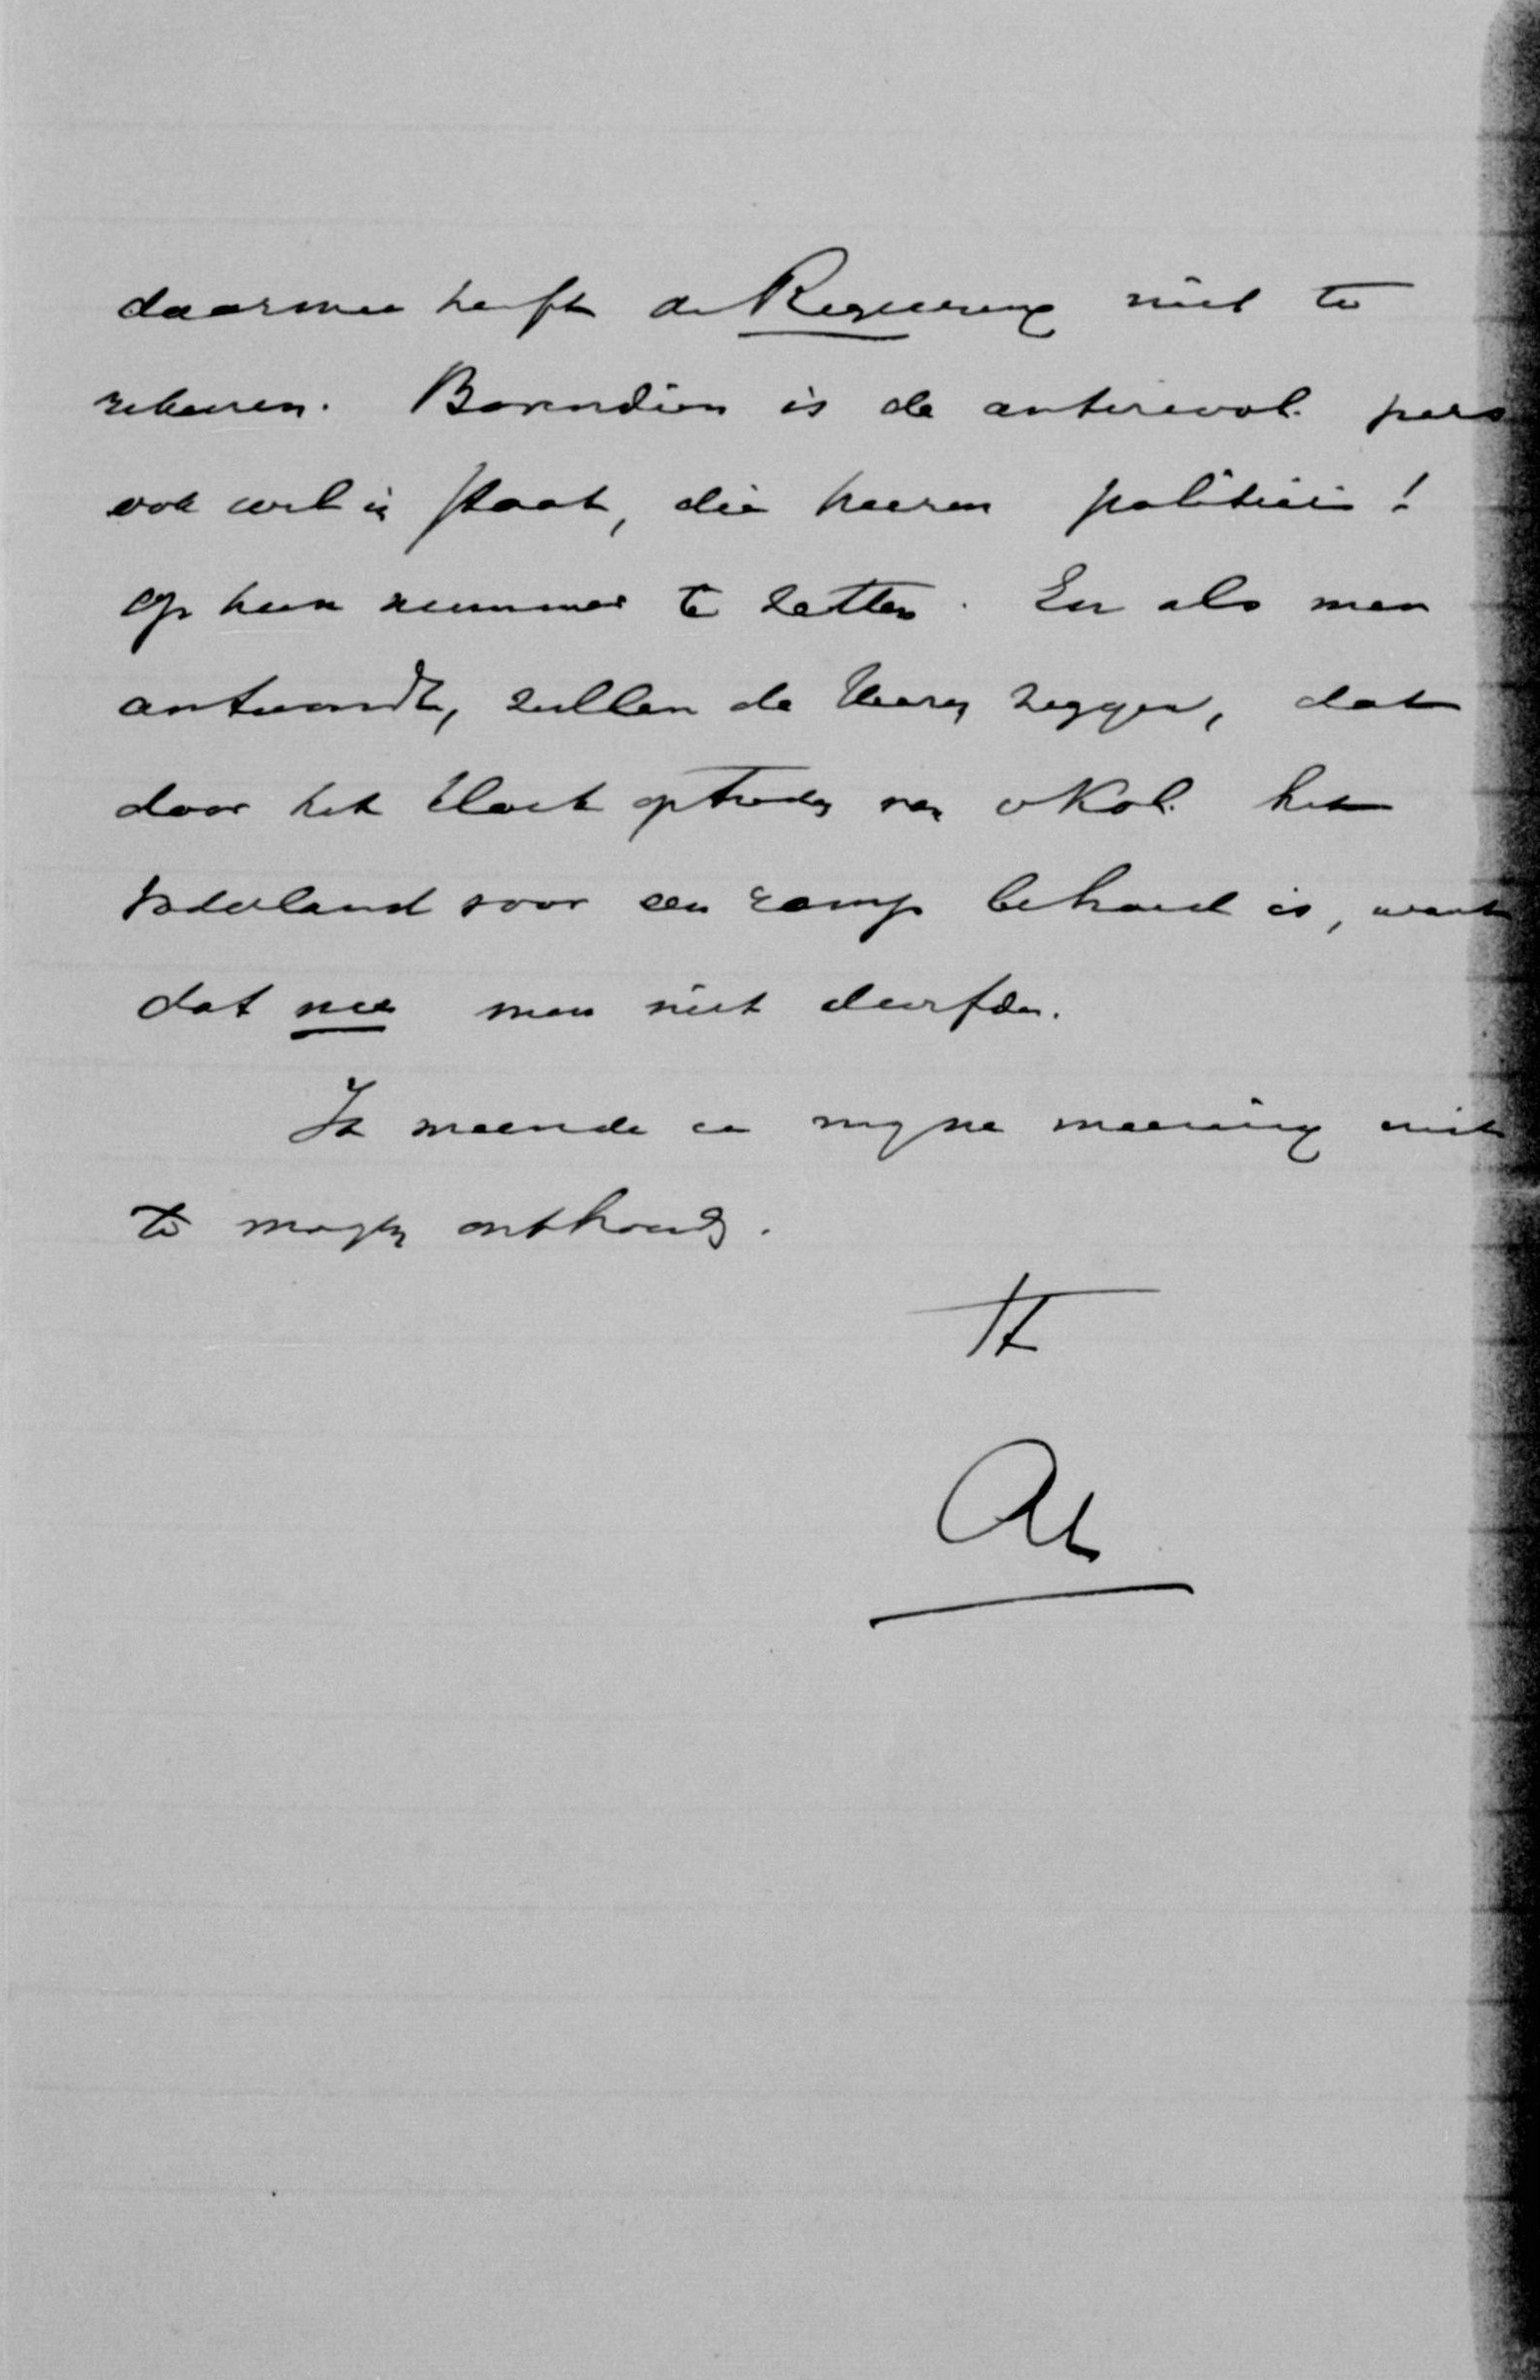 daarmee heeft de Regeering niet te
rekenen. Bovendien is de antirevol. pers
ook wel in staat, die heeren politici!
op hun nummer te zetten. En als men
antwoordt, zullen de heeren zeggen, dat
door het kloek optreden van v Kol. het
Vaderland voor een ramp behoed is, want
dat nu men niet durfde.
Ik meende u mijne meening niet
te mogen onthouden.
tt